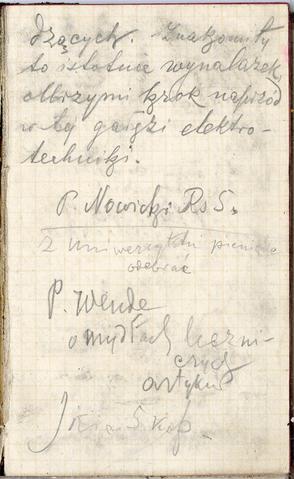 dzących. Znakomity
to istotnie wynalazek,
olbrzymi krok naprzód
w tej gałęzi elektro-
techniki.
P. Nowicki Rs 5.
z uniwersytetu pieniądze
odebrać
P. Wende
o mydłach leczni-
czych
artykuł
5 kop.